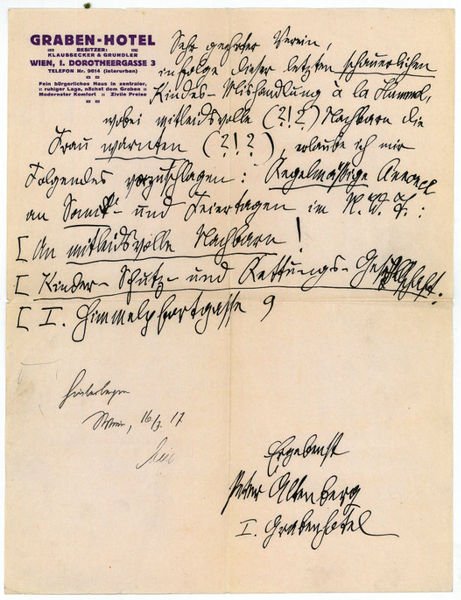 GRABEN-HOTEL
BESITZER:
KLAUSSECKER & GRUNDLER
WIEN, I. DOROTHEERGASSE 3
TELEFON Nr. 9614 (interurban)
Fein bürgerliches Haus in zentraler,
ruhiger Lage, nächst dem Graben
Modernster Komfort Zivile Preise
Sehr geehrter Verein,
infolge dieser letzten schauerlichen
Kindes-Mishandlung à la Hummel,
wobei mitleidsvolle (?!?) Nachbarn die
Frau warnten (?!?), erlaube ich mir
Folgendes vorzuschlagen: Regelmäßige Annonce
an Samst- und Feiertagen im N. W. T.:
[ An mitleidsvolle Nachbarn!
[ Kinder-Schutz- und Rettungs-Gesellschaft.
[ I. Himmelpfortgasse 9
Hinterlegen
Wien, 16/3 17
Ergebenst
Peter Altenberg
I. Grabenhotel